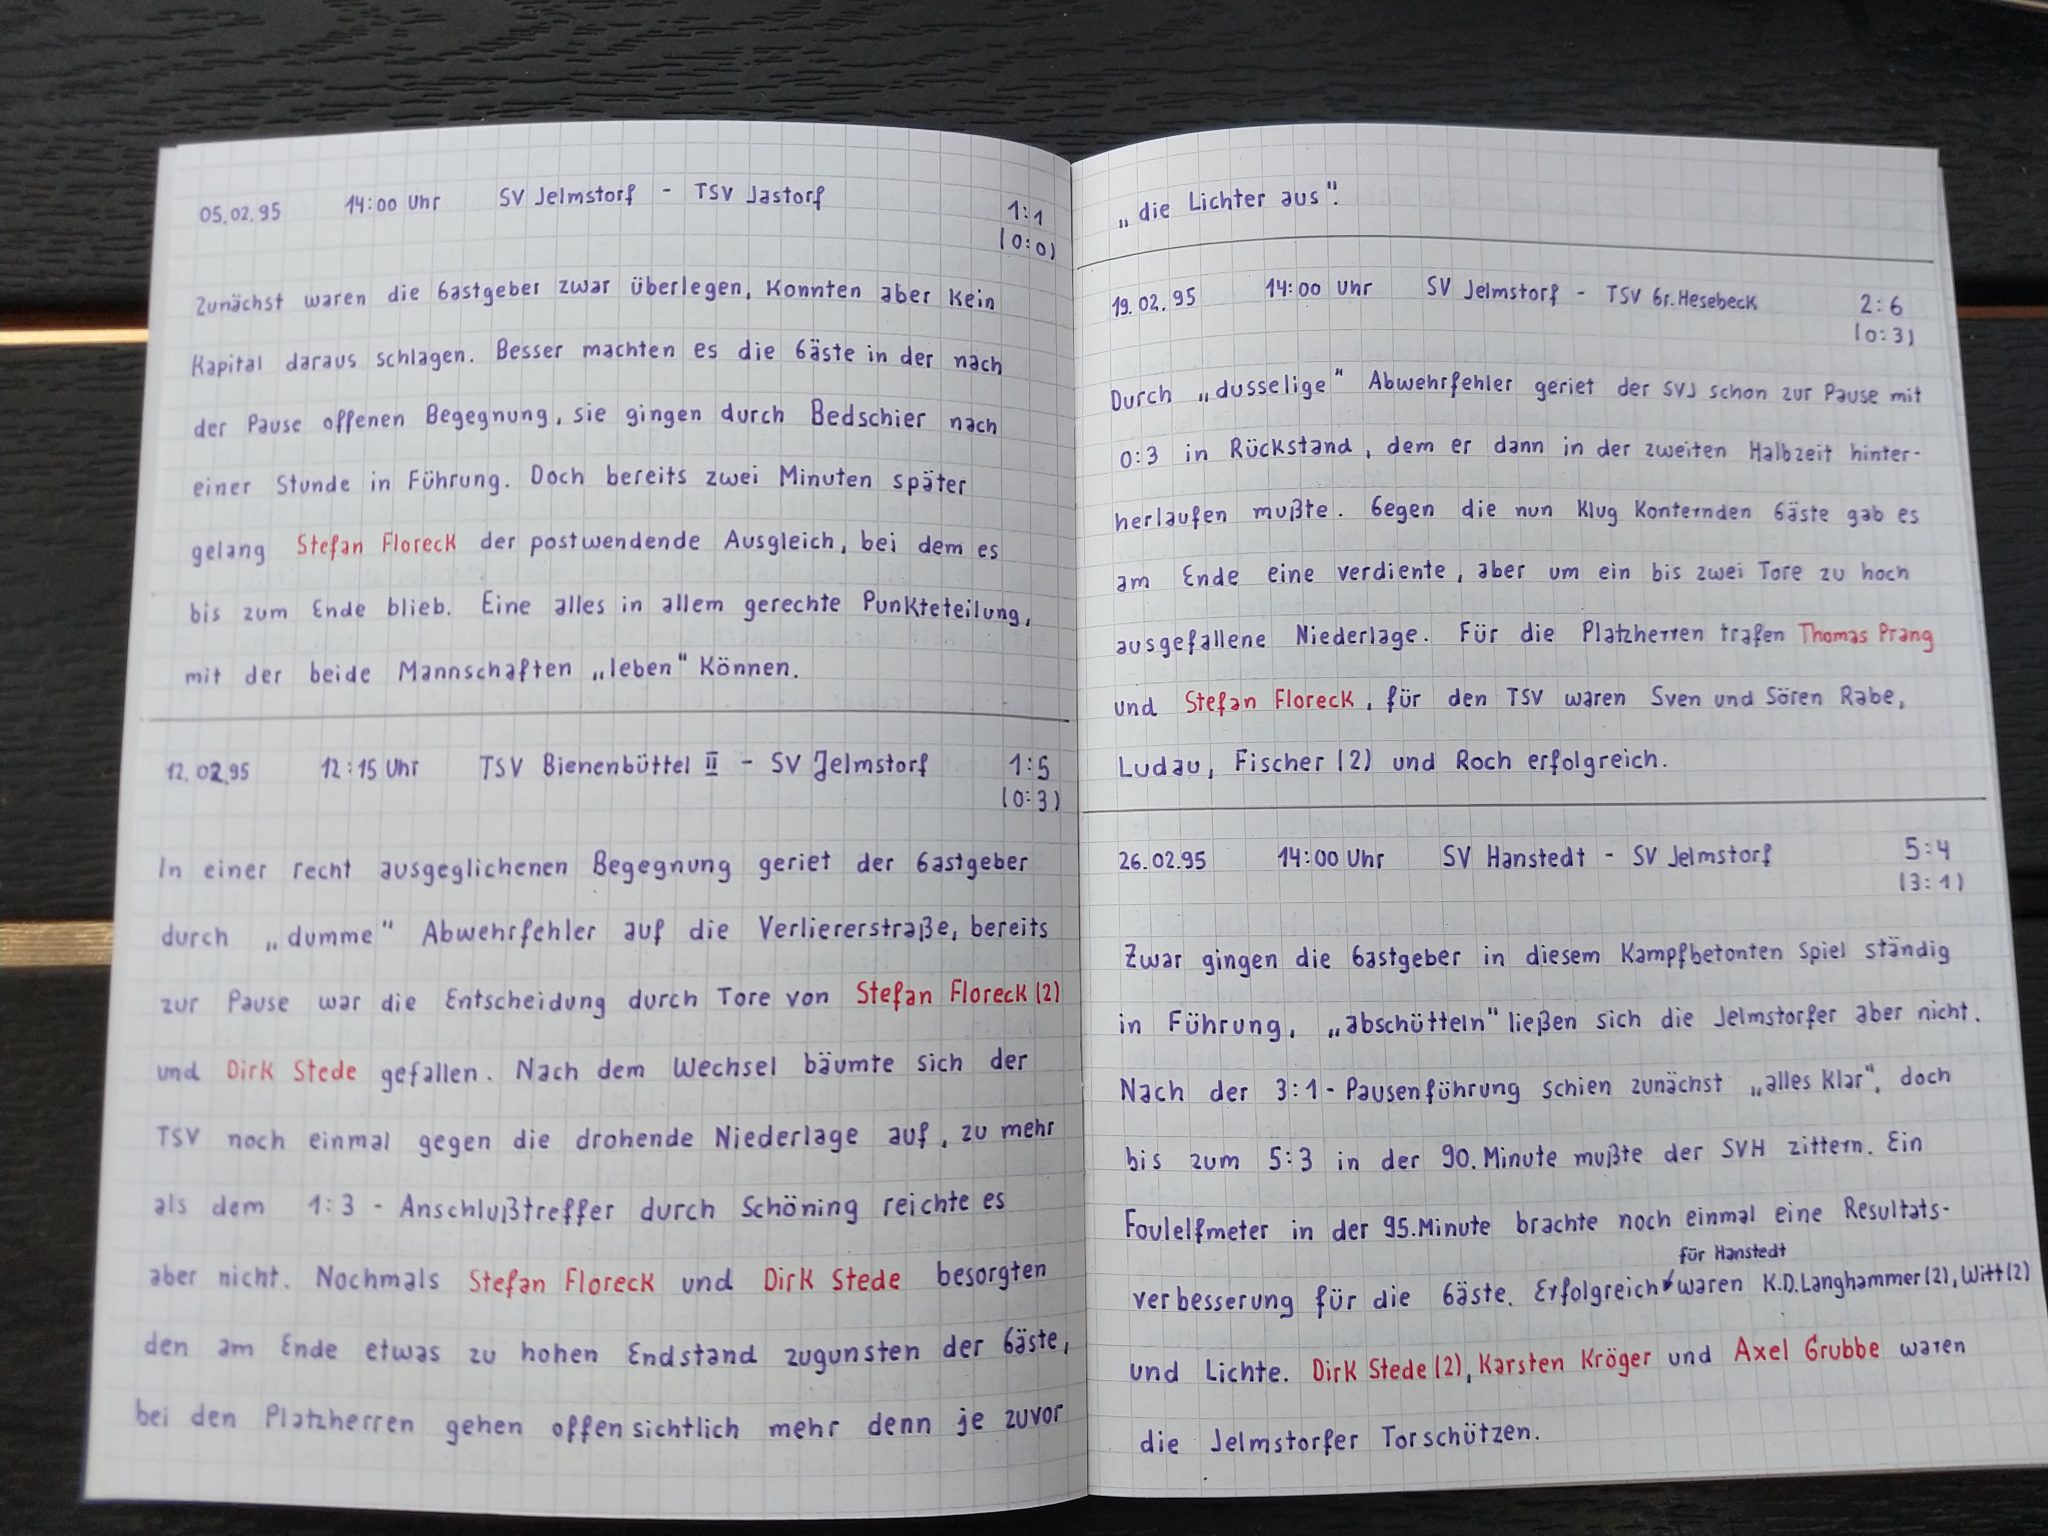 05.02.95 14:00 Uhr SV Jelmstorf - TSV Jastorf 1:1
(0:0)
Zunächst waren die Gastgeber zwar überlegen, konnten aber kein
Kapital daraus schlagen. Besser machten es die Gäste in der nach
der Pause offenen Begegnung, sie gingen durch Bedschier nach
einer Stunde in Führung. Doch bereits zwei Minuten später
gelang Stefan Floreck der postwendende Ausgleich, bei dem es
bis zum Ende blieb. Eine alles in allem gerechte Punkteteilung,
mit der beide Mannschaften „leben" können.
12.02.95 12:15 Uhr TSV Bienenbüttel II - SV Jelmstorf 1:5
(0:3)
In einer recht ausgeglichenen Begegnung geriet der Gastgeber
durch „dumme" Abwehrfehler auf die Verliererstraße, bereits
zur Pause war die Entscheidung durch Tore von Stefan Floreck (2)
und Dirk Stede gefallen. Nach dem Wechsel bäumte sich der
TSV noch einmal gegen die drohende Niederlage auf, zu mehr
als dem 1:3 - Anschlußtreffer durch Schöning reichte es
aber nicht. Nochmals Stefan Floreck und Dirk Stede besorgten
den am Ende etwas zu hohen Endstand zugunsten der Gäste,
bei den Platzherren gehen offensichtlich mehr denn je zuvor
„die Lichter aus".
19.02.95 14:00 Uhr SV Jelmstorf - TSV Gr. Hesebeck 2:6
(0:3)
Durch „dusselige" Abwehrfehler geriet der SVJ schon zur Pause mit
0:3 in Rückstand, dem er dann in der zweiten Halbzeit hinter-
herlaufen mußte. Gegen die nun klug konternden Gäste gab es
am Ende eine verdiente, aber um ein bis zwei Tore zu hoch
ausgefallene Niederlage. Für die Platzherren trafen Thomas Prang
und Stefan Floreck, für den TSV waren Sven und Sören Rabe,
Ludau, Fischer (2) und Roch erfolgreich.
26.02.95 14:00 Uhr SV Hanstedt - SV Jelmstorf 5:4
(3:1)
Zwar gingen die Gastgeber in diesem kampfbetonten Spiel ständig
in Führung, „abschütteln" ließen sich die Jelmstorfer aber nicht.
Nach der 3:1 - Pausenführung schien zunächst „alles klar", doch
bis zum 5:3 in der 90. Minute mußte der SVH zittern. Ein
Foulelfmeter in der 95. Minute brachte noch einmal eine Resultats-
für Hanstedt
verbesserung für die Gäste. Erfolgreich waren K.D. Langhammer (2), Witt (2)
und Lichte. Dirk Stede (2), Karsten Kröger und Axel Grubbe waren
die Jelmstorfer Torschützen.